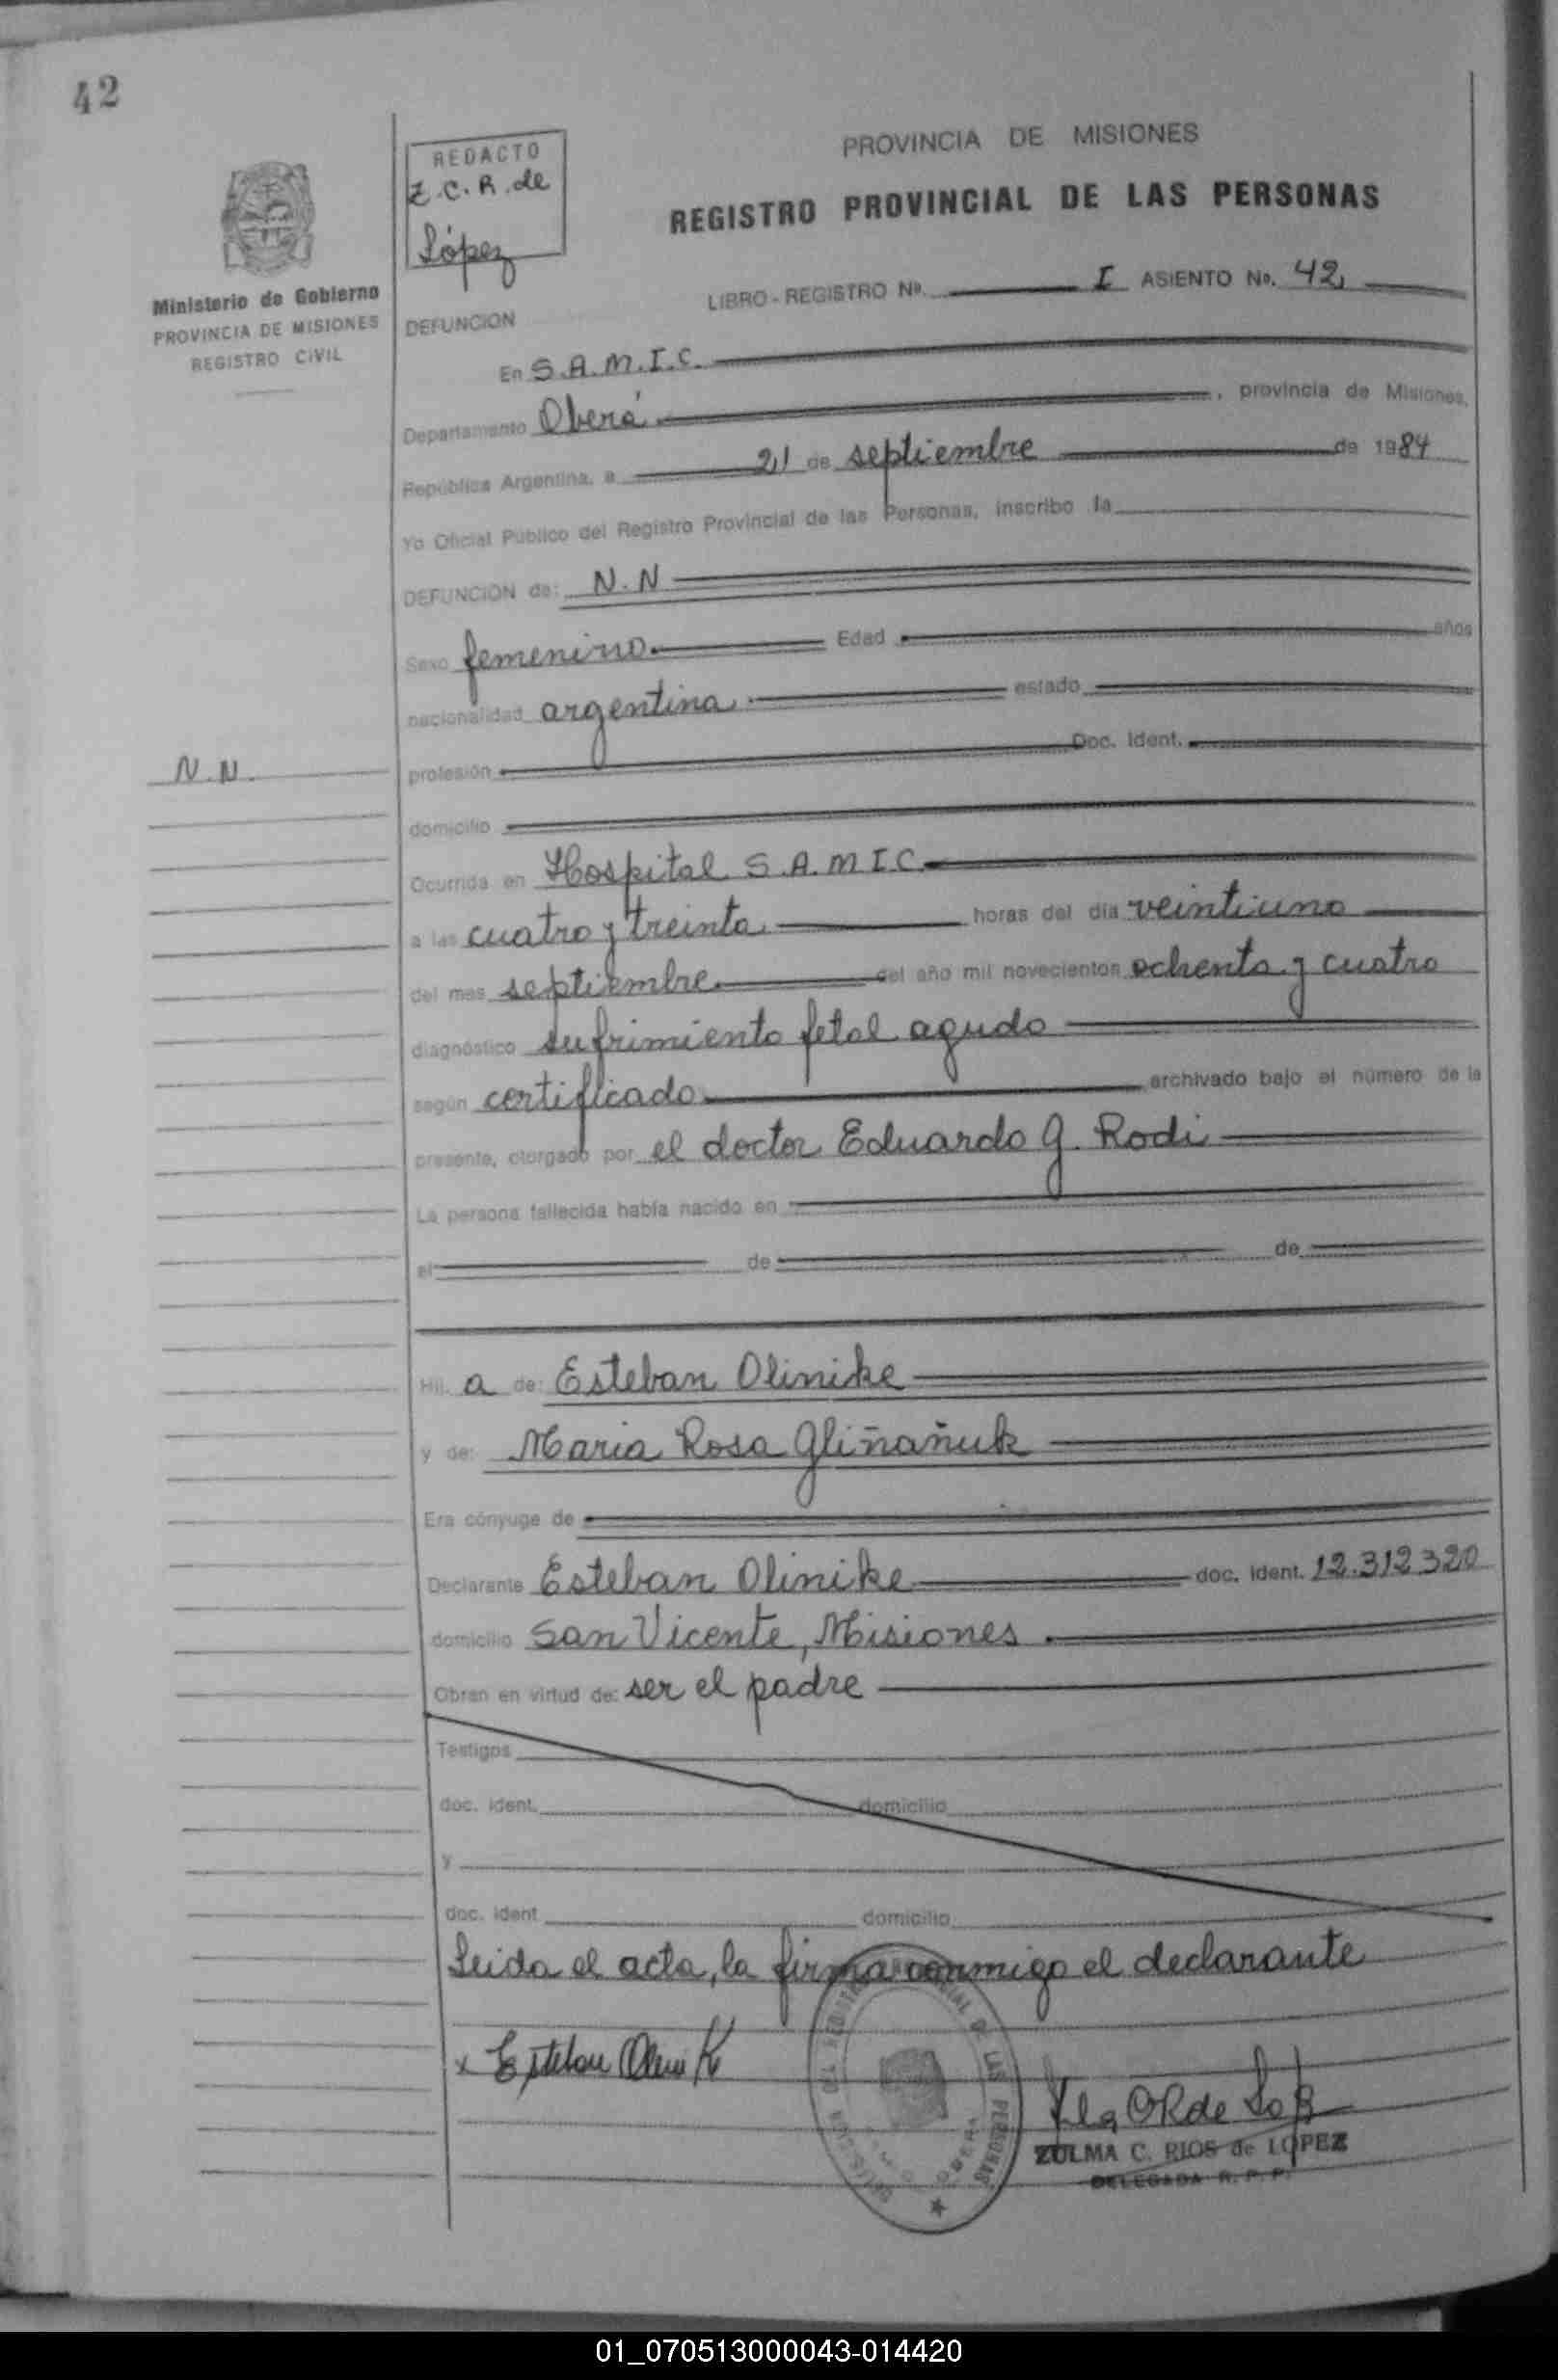 42
REDACTO
Z.C.R. de
López
Ministerio de Gobierno
PROVINCIA DE MISIONES
REGISTRO CIVIL
PROVINCIA DE MISIONES
REGISTRO PROVINCIAL DE LAS PERSONAS
LIBRO - REGISTRO Nº. I ASIENTO No. 42,
DEFUNCION
En S.A.M.I.C.
Departamento Oberá , provincia de Misiones,
República Argentina, a 21 de septiembre de 1984
Yo Oficial Público del Registro Provincial de las Personas, inscribo la
DEFUNCION de: N.N
Sexo femenino. Edad años
nacionalidad argentina. estado
N.N.
profesión Doc. Ident.
domicilio
Ocurrida en Hospital S.A.M.I.C.
a las cuatro y treinta. horas del día veintiuno
del mes septiembre. del año mil novecientos ochenta y cuatro
diagnóstico sufrimiento fetal agudo
según certificado. archivado bajo el número de la
presente, otorgado por el doctor Eduardo G. Rodi
La persona fallecida había nacido en
el de de
Hij. a de: Esteban Olinike
y de: Maria Rosa Gliñañuk
Era cónyuge de
Declarante Esteban Olinike doc. ident. 12.312.320
domicilio San Vicente, Misiones.
Obran en virtud de: ser el padre
Testigos
doc. ident. domicilio
y
doc. ident. domicilio
Leida el acta, la firma conmigo el declarante
x Esteban
LAS PERSONAS
OBERA
ZULMA C. RIOS de LOPEZ
DELEGADA R. P. P.
01_070513000043-014420